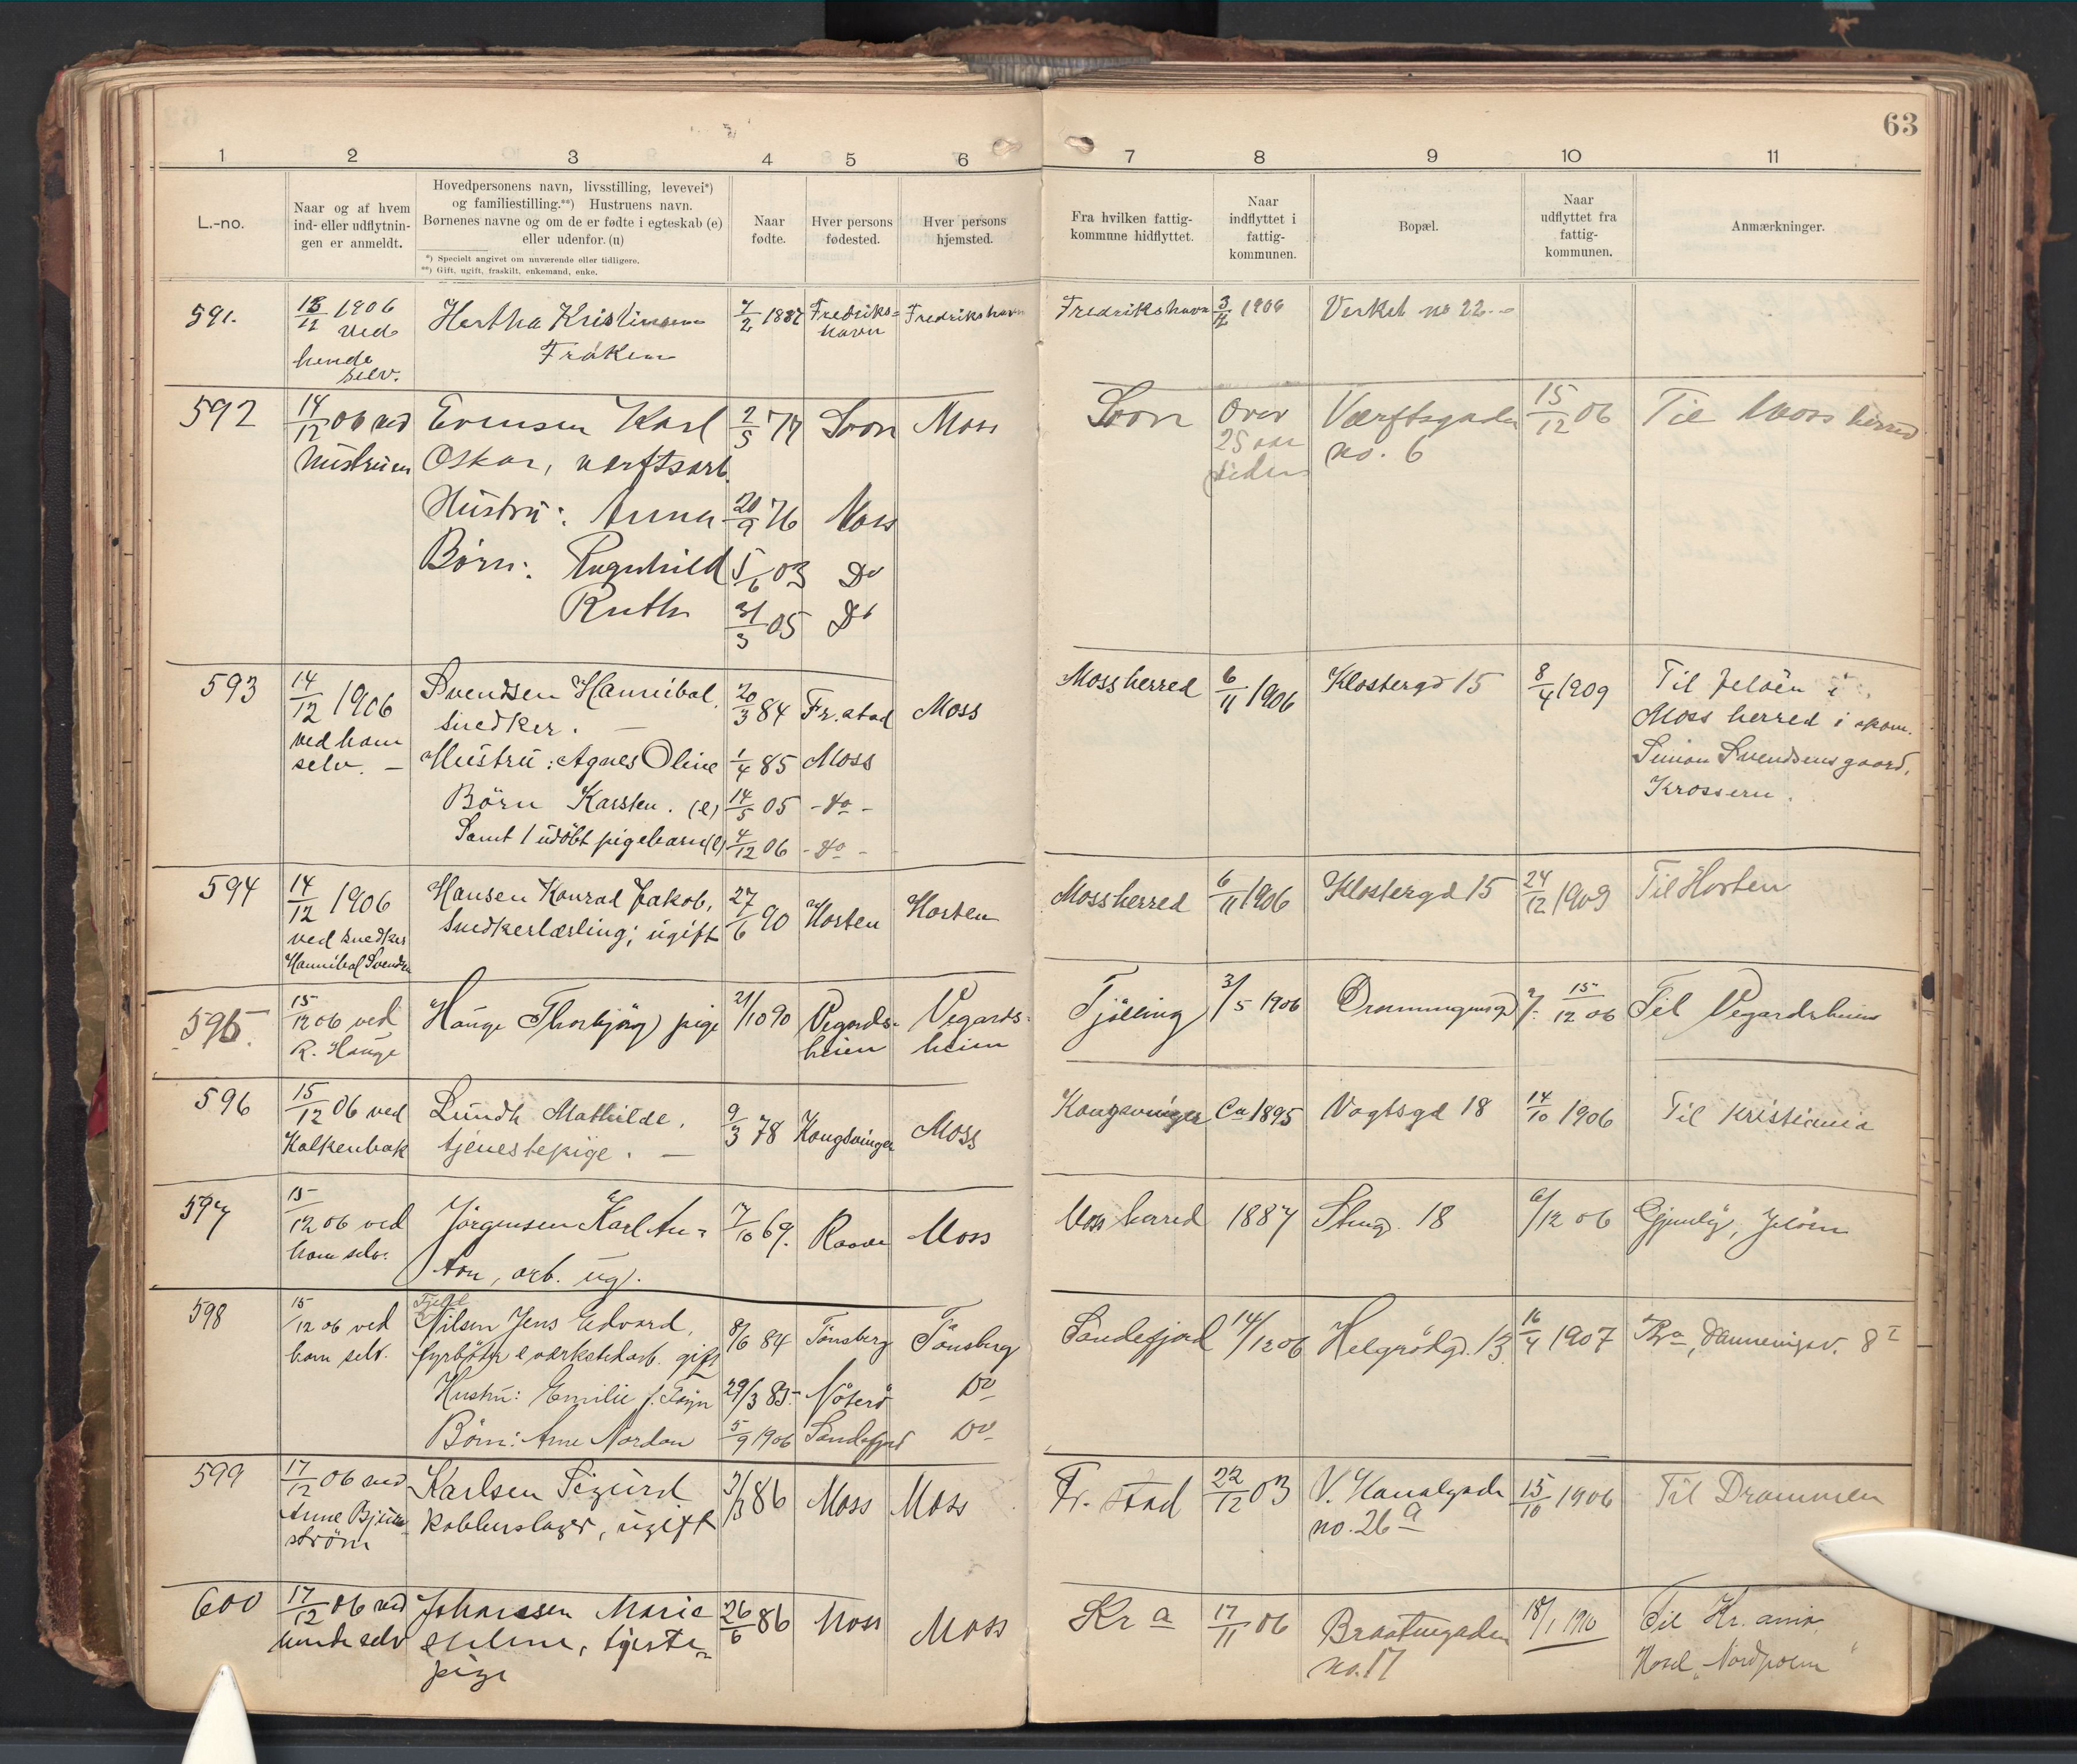 63
1 2 3 4 5 6 7 8 9 10 11
L.-no.
Naar og af hvem
ind- eller udflytnin-
gen er anmeldt.
Hovedpersonens navn, livsstilling, levevei*)
og familiestilling.**) Hustruens navn.
Børnenes navne og om de er fødte i egteskab (e)
eller udenfor. (u)
*) Specielt angivet om nuværende eller tidligere.
**) Gift, ugift, fraskilt, enkemand, enke.
Naar
fødte.
Hver persons
fødested.
Hver persons
hjemsted.
Fra hvilken fattig-
kommune hidflyttet.
Naar
indflyttet i
fattig-
kommunen.
Bopæl.
Naar
udflyttet fra
fattig-
kommunen.
Anmærkninger.
591.
1906
ved
hende
selv.
Hertha Kristinsen
Frøken
7/2 1887
Fredriks=
havn
Fredrikshavn
Fredrikshavn
1906
Verket no 22
592
14/12 06 ved
Hustruen
Evensen Karl
Oskar, værftsarb.
Hustru: Anna
Børn: Ragnhild
Ruth
2/5 77
20/9 76
5/6 03
31/3 05
Soon
Moss
Do
Do
Moss
Soon
Over
25 aar
siden
Værftsgaden
no. 6
15/12 06
Til Moss herred
593
14/12 1906
ved ham
selv. —
Svendsen Hannibal,
snedker. —
Hustru: Agnes Oline
Børn Karsten. (e)
Samt 1 udøbt pigebarn (e)
20/3 84
1/4 85
14/5 05
4/12 06
Fr.stad
Moss
- do -
- do -
Moss
Moss herred
6/11 1906
Klostergd 15
8/4 1909
Til Jeløen i
Moss herred i skom.
Simon Svendsens gaard,
Krossern.
594
14/12 1906
ved snedker
Hannibal Svendsen
Hansen Konrad Jakob,
snedkerlærling; ugift
27/6 90
Horten
Horten
Moss herred
6/11 1906
Klostergd 15
24/12 1909
Til Horten
595.
15/12 06 ved
R. Hauge
Hauge Thorbjørg pige
21/10 90
Vegards-
heien
Vegards-
heien
Tjølling
3/5 1906
Dronningensgd 7.
15/12 06
Til Vegardsheien
596
15/12 06 ved
Kalkenbak
Lundh Mathilde,
tjenestepige. —
9/3 78
Kongsvinger
Moss
Kongsvinger
Ca 1895
Vogtsgd 18
14/10 1906
Til Kristiania
597
15/12 06 ved
ham selv.
Jørgensen Karl An=
ton, arb. ug.
7/10 69.
Raade
Moss
Moss herred
1887
18
6/12 06
Jeløen
598
15/12 06 ved
ham selv.
Fjeld
Nilsen Jens Edvard,
fyrbøter & værkstedarb. gift
Hustru: Emilie f.
Børn: Arne Nordan
8/6 84
29/3 85
5/9 1906
Tønsberg
Nøterø
Sandefjord
Tønsberg
Do
Do
Sandefjord
14/12 06
Helgrødgd. 13
16/4 1907
Kra, Dannevigsv. 8 I
599
17/12 06 ved
Anne Bjurn
strøm
Karlsen Sigurd
kobberslager, ugift
86
Moss
Moss
Fr. stad
22/12 03
V. Kanalgade
no. 26 a
15/10 1906
Til Drammen
600
17/12 06 ved
hende selv
Johanssen Marie
Helene, tjeste=
pige
26/6 86
Moss
Moss
Kr a
17/11 06
Braatengaden
no. 17
18/1 1910
Til Kr.ania
Hotel „Nordpolen"